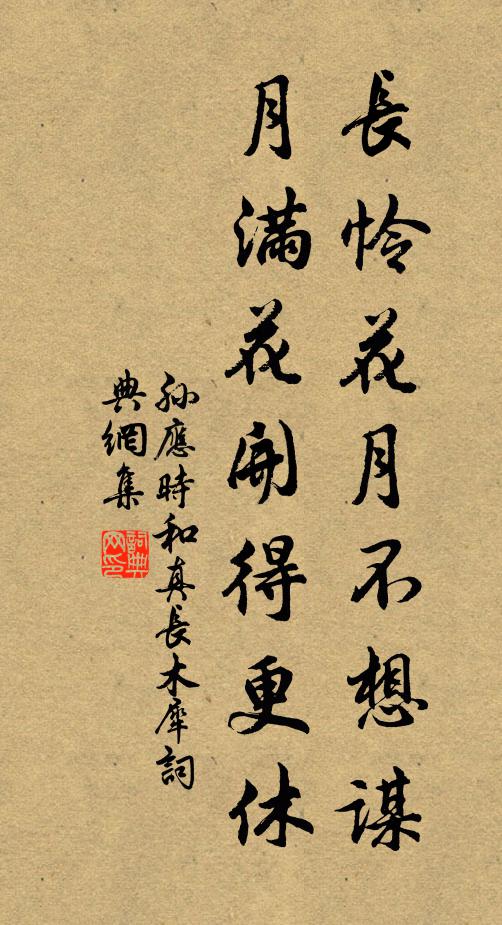 長怜花月不想謀
月滿花開得更休
孙應時和真長木犀詞
典網集
詞典
网印